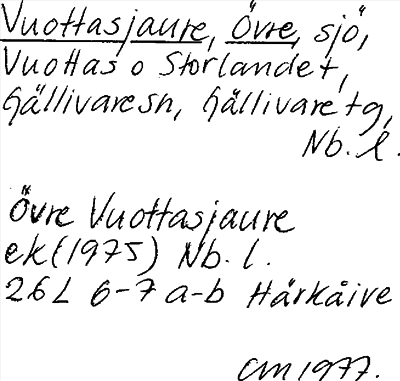 Vuottasjaure, Övre, sjö,
Vuottas o Storlandet,
Gällivare sn, Gällivare tg,
Nb. l.
Övre Vuottasjaure
ek (1975) Nb. l.
26L 6-7 a-b Harkåive
CM 1977.